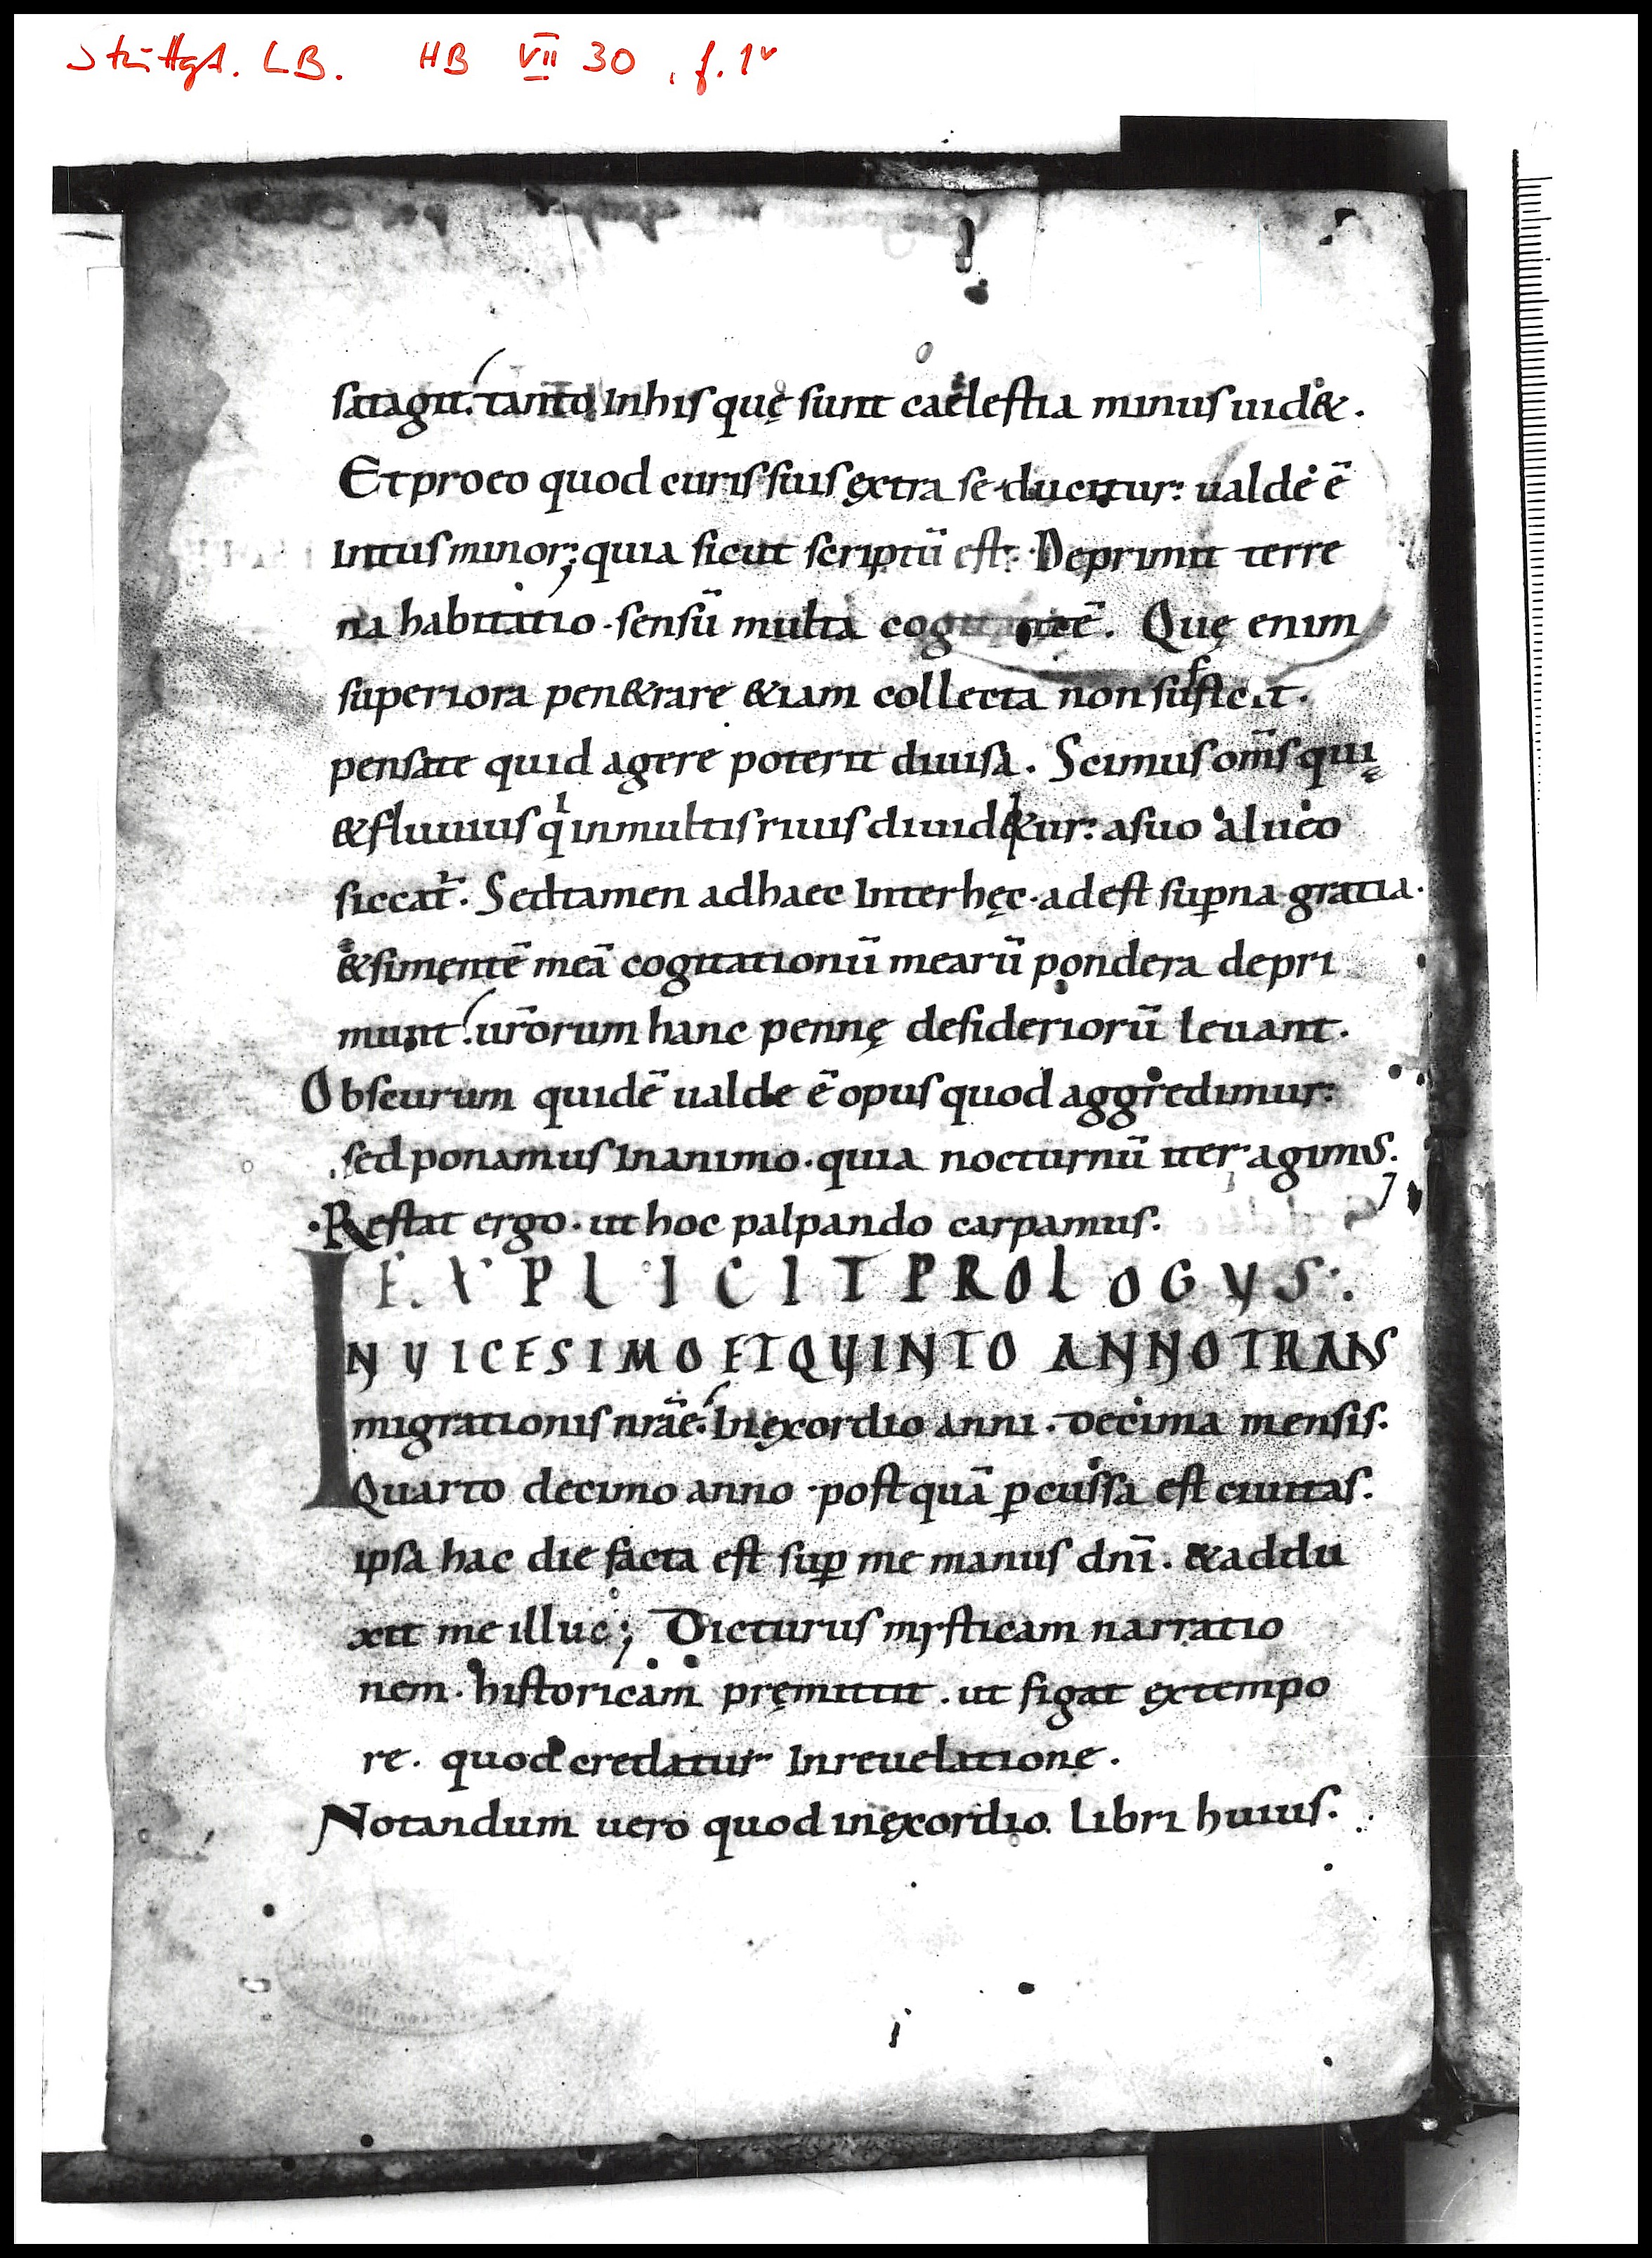 Stuttgt. LB. HB VII 30, f. 1v
satagit. tanto inhis quę sunt caelestia minus uid&.
Etproeo quod curis suis extra se ducitur: ualde ē
intus minor; quia sicut scriptū est. Deprimit terre
na habitatio. sensū multa cogitantē. Quę enim
superiora pen&rare &iam collecta non sufficit.
pensate quid agere poterit diuisa. Scimus om̄s quia
&fluuius qui inmultis riuis diuid&ur: asuo alueo
siccat̄. Sedtamen adhaec inter hęc. adest sup̄na gratia.
&simentē meā cogitationū mearū pondera depri
munt. ur̄orum hanc pennę desideriorū leuant.
Obscurum quidē ualde ē opus quod aggredimur:
sed ponamus inanimo. quia nocturnū iter agimus.
Restat ergo. ut hoc palpando carpamus.
EXPLICIT PROLOGVS:
IN VICESIMO ET QVINTO ANNO TRANS
migrationis nrāe. Inęxordio anni. decima mensis.
Quarto decimo anno. postquā p̄cussa est ciuitas.
ipsa hac die facta est sup̄ me manus dnī. &addu
xit me illuc; Dicturus mysticam narratio
nem. historicam pręmittit. ut figat ęxtempo
re. quod credatur inreuelatione.
Notandum uero quod inęxordio libri huius.
i